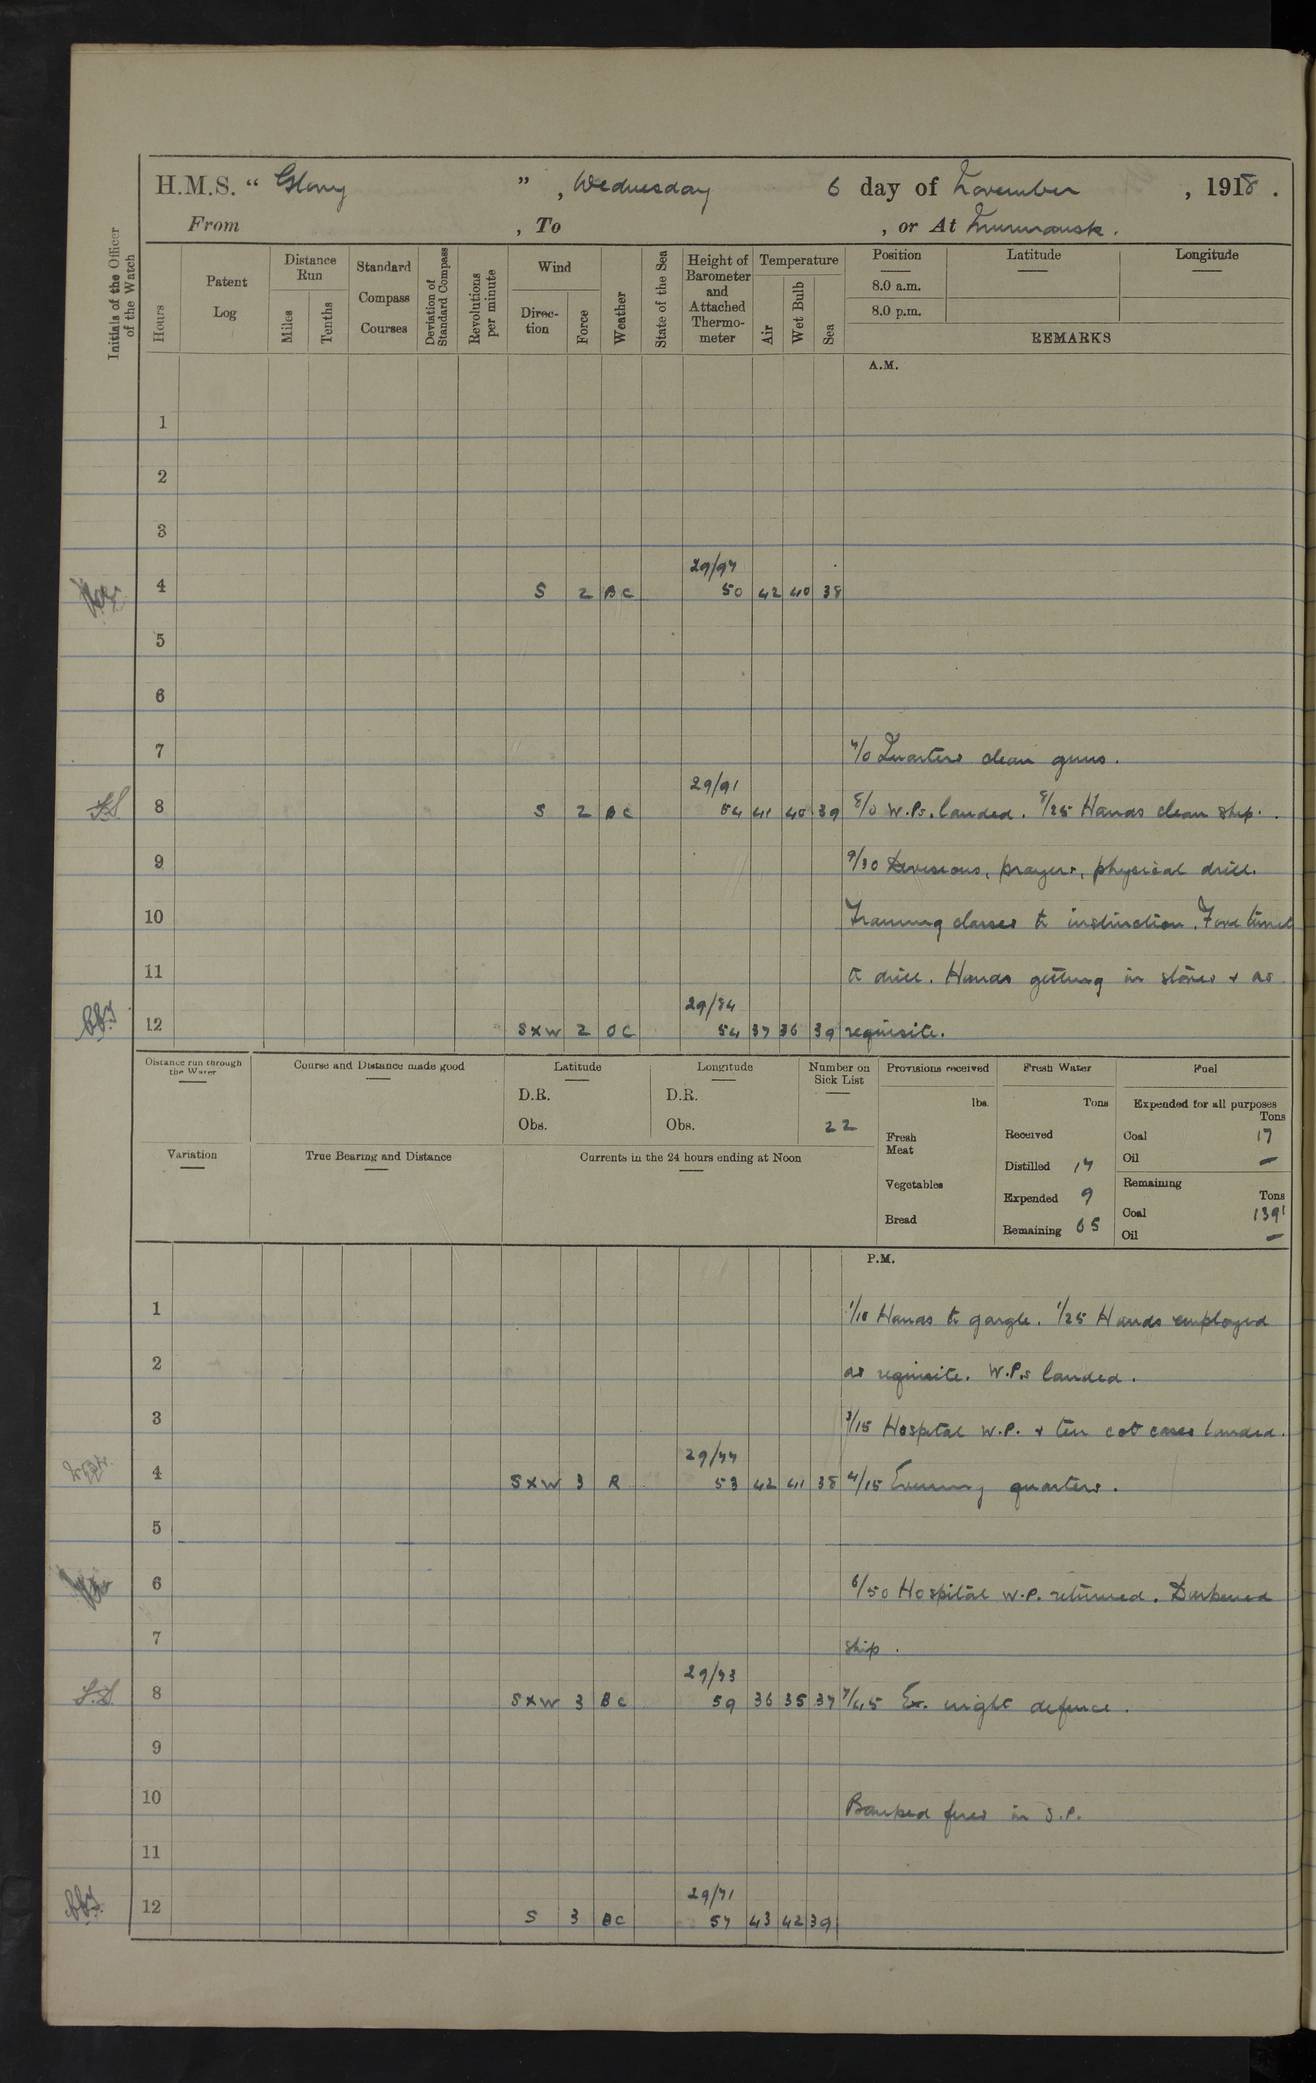 H.M.S. “ Glory ” , Wednesday 6 day of November , 1918 .
From , To , or At Murmansk .
Initials of the Officer of the Watch
Hours
Patent Log
Distance Run
Miles
Tenths
Standard Compass Courses
Deviation of Standard Compass
Revolutions per minute
Wind
Direc-tion
Force
Weather
State of the Sea
Height of Barometer and Attached Thermo-meter
Temperature
Air
Wet Bulb
Sea
Position Latitude Longitude
8.0 a.m.
8.0 p.m.
REMARKS
A.M.
1
2
3
29/97
4 S 2 BC 50 42 40 38
5
6
7 7/0 Quarters clean guns.
29/91
8 S 2 BC 54 41 40 39 8/0 W.Ps. landed. 8/25 Hands clean ship.
9 9/30 Divisions, prayers, physical drill.
10 Training classes to instruction.
11 to drill. Hands getting in stores + as
29/84
12 SXW 2 OC 54 37 36 39 requisite.
Distance run through the Water
Course and Distance made good
Latitude
D.R.
Obs.
Longitude
D.R.
Obs.
Number on Sick List
22
Provisions received
lbs.
Fresh Meat
Vegetables
Bread
Fresh Water
Tons
Received
Distilled 17
Expended 9
Remaining 65
Fuel
Expended for all purposes
Tons
Coal 17
Oil —
Remaining
Tons
Coal 1391
Oil —
Variation
True Bearing and Distance
Currents in the 24 hours ending at Noon
P.M.
1 1/10 Hands to gargle. 1/25 Hands employed
2 as requisite. W.Ps landed.
3 3/15 Hospital W.P. + ten cot cases landed.
29/77
4 SXW 3 R 53 42 41 38 4/15 Evening quarters.
5
6 6/50 Hospital W.P. returned. Darkened
7 ship.
29/73
8 SXW 3 BC 59 36 35 37 7/45 Ex. night defence.
9
10 Banked fires in S.P.
11
29/71
12 S 3 BC 57 43 42 39